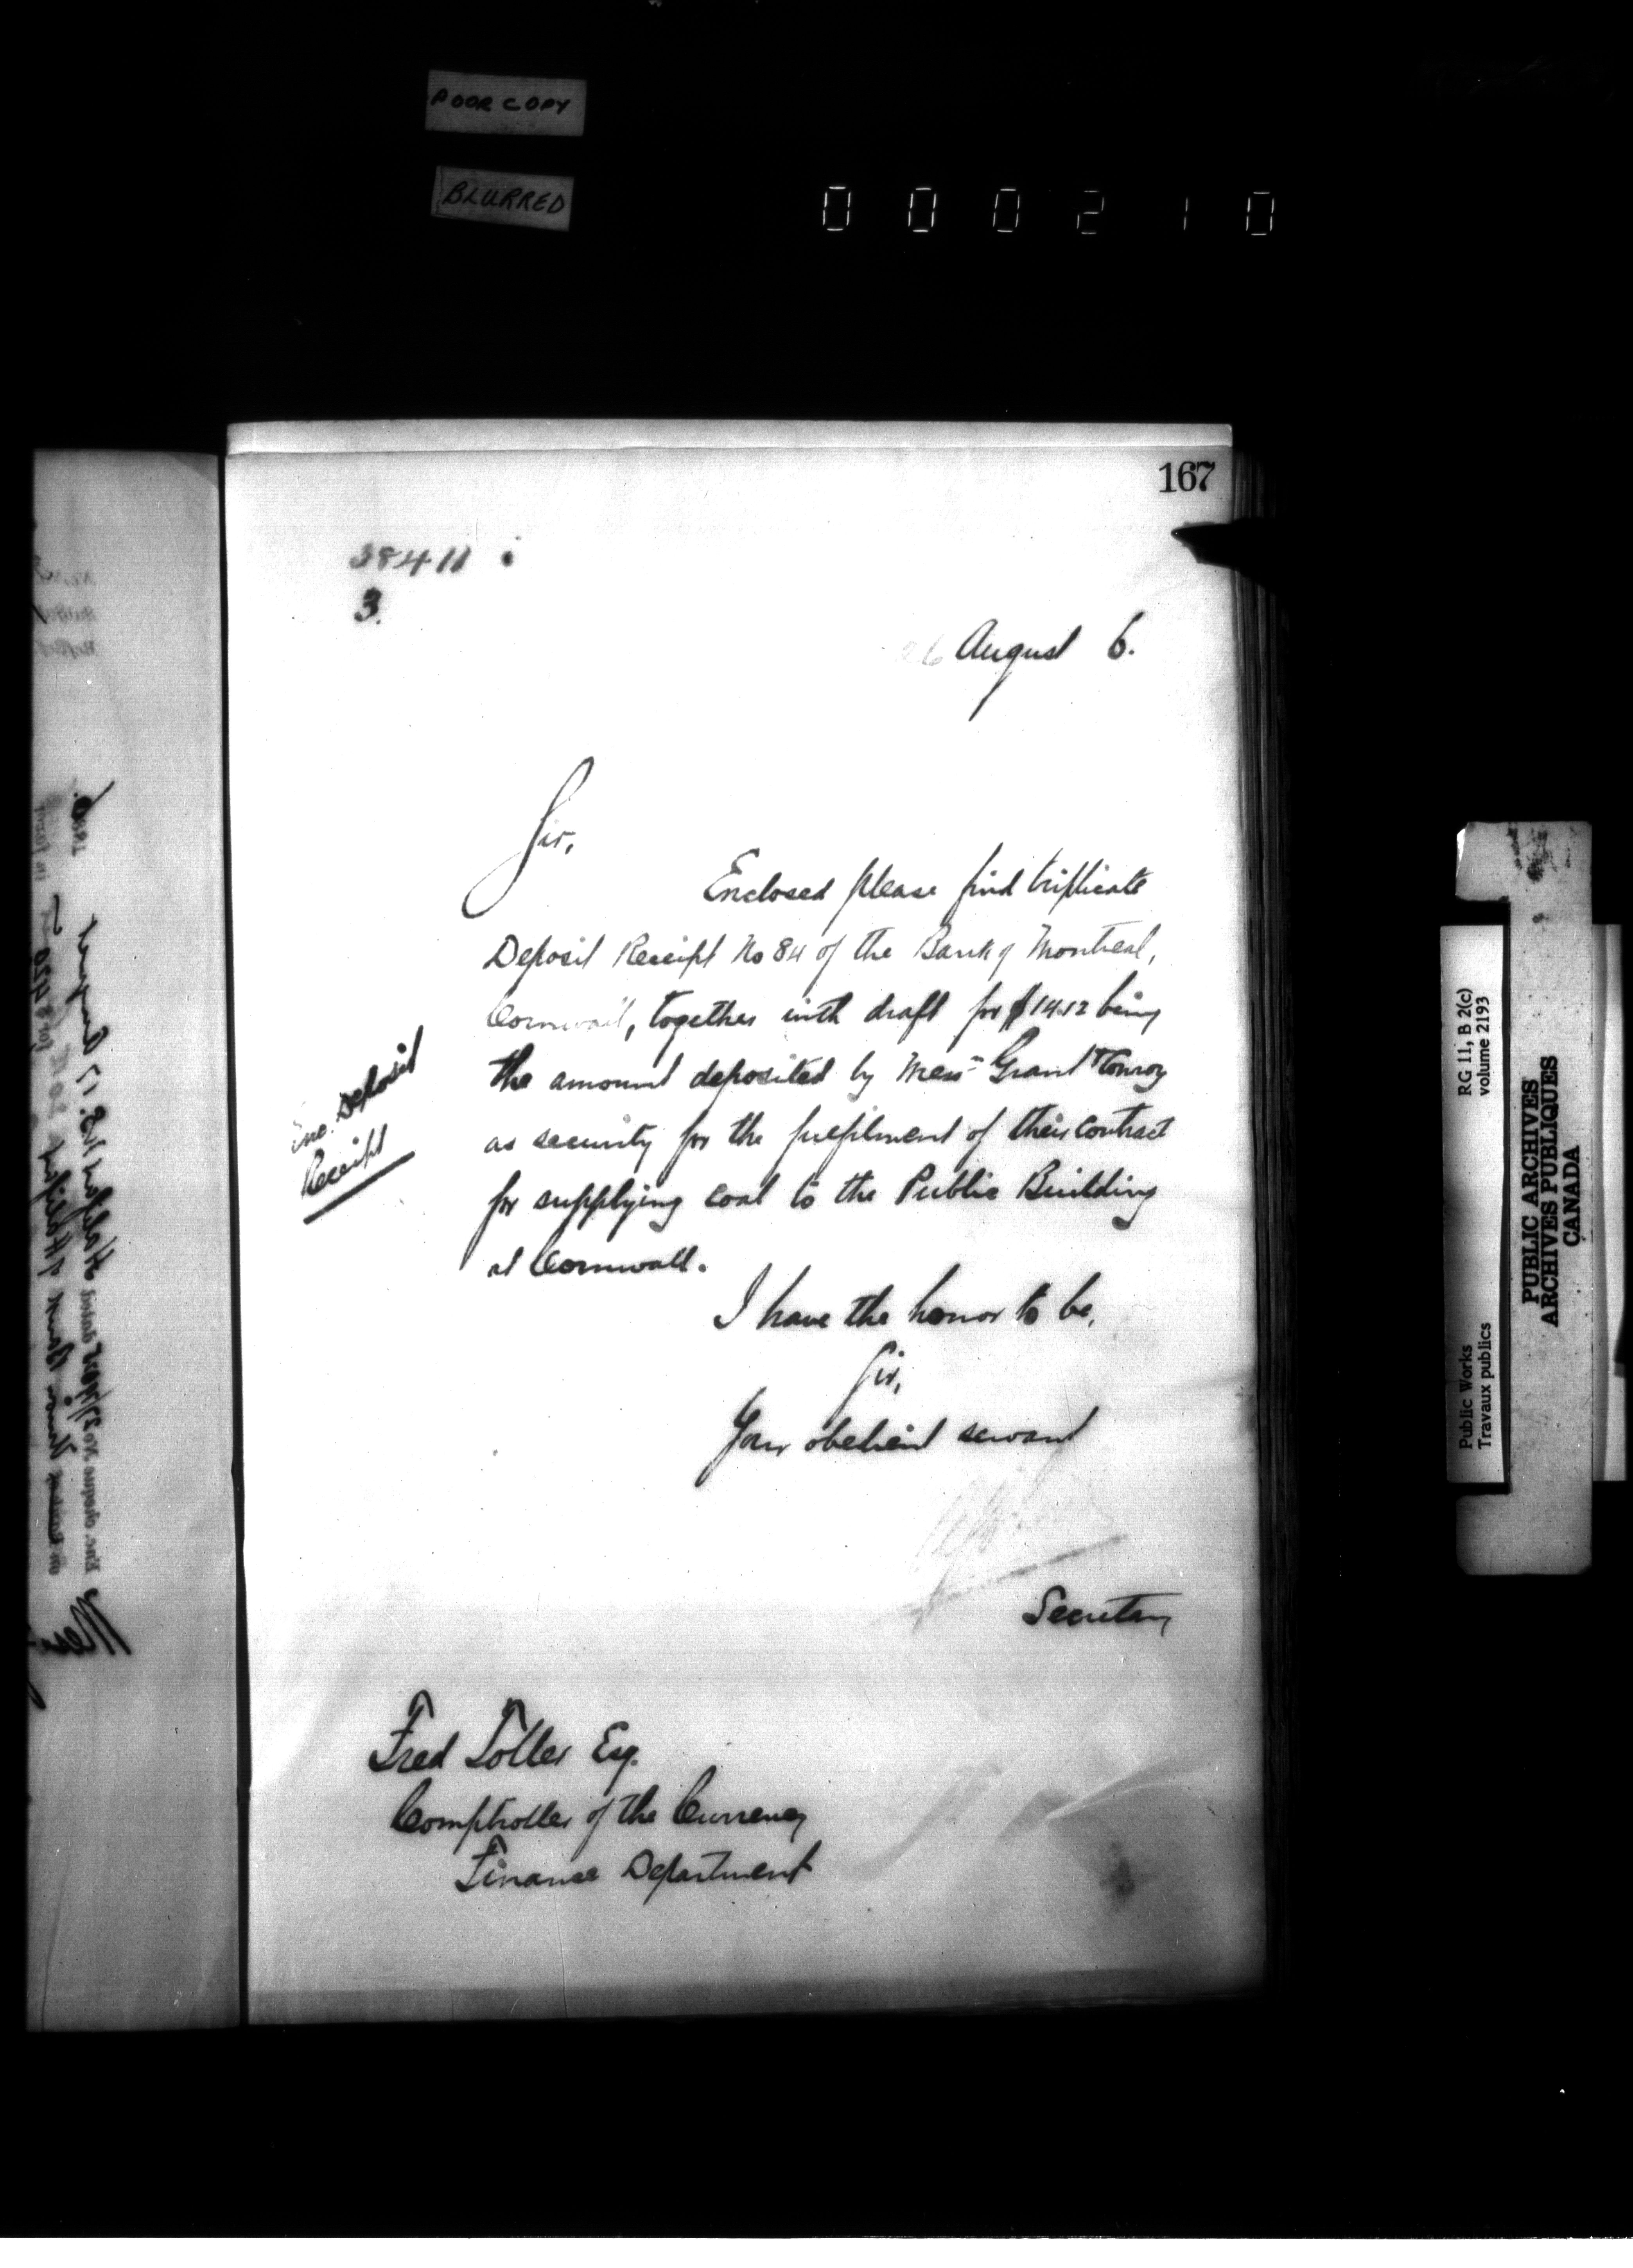 POOR COPY
BLURRED
000210
167
38411
3.
26 August 6.
Sir,
Enclosed please find triplicate
Deposit Receipt No 84 of the Bank of Montreal,
Cornwall, together with draft for $14.12 being
the amount deposited by Messrs Grant & Conroy
as security for the fulfilment of their contract
for supplying coal to the Public Building
at Cornwall.
Enc. Deposit
Receipt
I have the honor to be,
Sir,
Your obedient servant
Secretary
Fred Toller Esq.
Comptroller of the Currency
Finance Department
Public Works
Travaux publics
RG 11, B 2(c)
volume 2193
PUBLIC ARCHIVES
ARCHIVES PUBLIQUES
CANADA